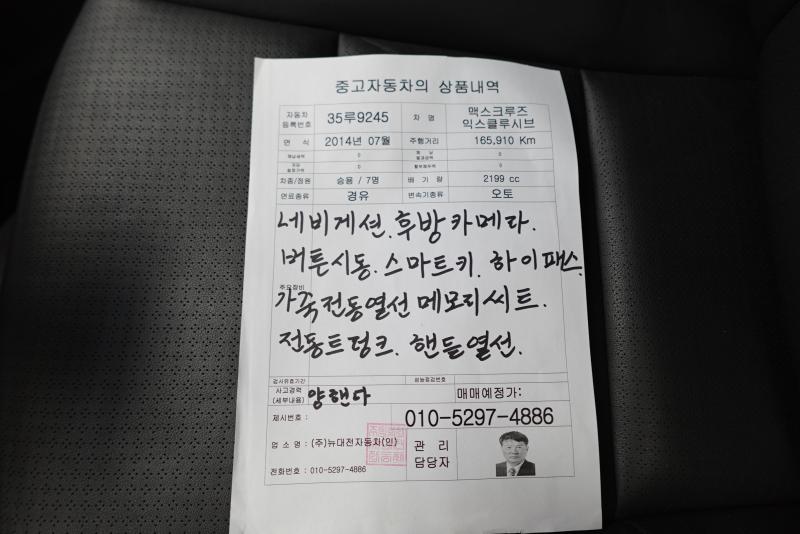 중고자동차의 상품내역
자동차 등록번호 35루9245 차 명 맥스크루즈 익스클루시브
연 식 2014년 07월 주행거리 165,910 Km
0 0
0 0
차종/정원 승용 / 7명 배 기 량 2199 cc
연료종류 경유 변속기종류 오토
네비게션. 후방카메다.
버튼시동. 스마트키. 하이패스.
주요장비
가죽전동열선메모리씨트.
전동트렁크. 핸들열선.
검사유효기간 성능점검번호
사고경력 (세부내용) 양핸다 매매예정가:
제시번호 : 010-5297-4886
업 소 명 : (주)뉴대전자동차(인) 관 리 담당자
전화번호 : 010-5297-4886